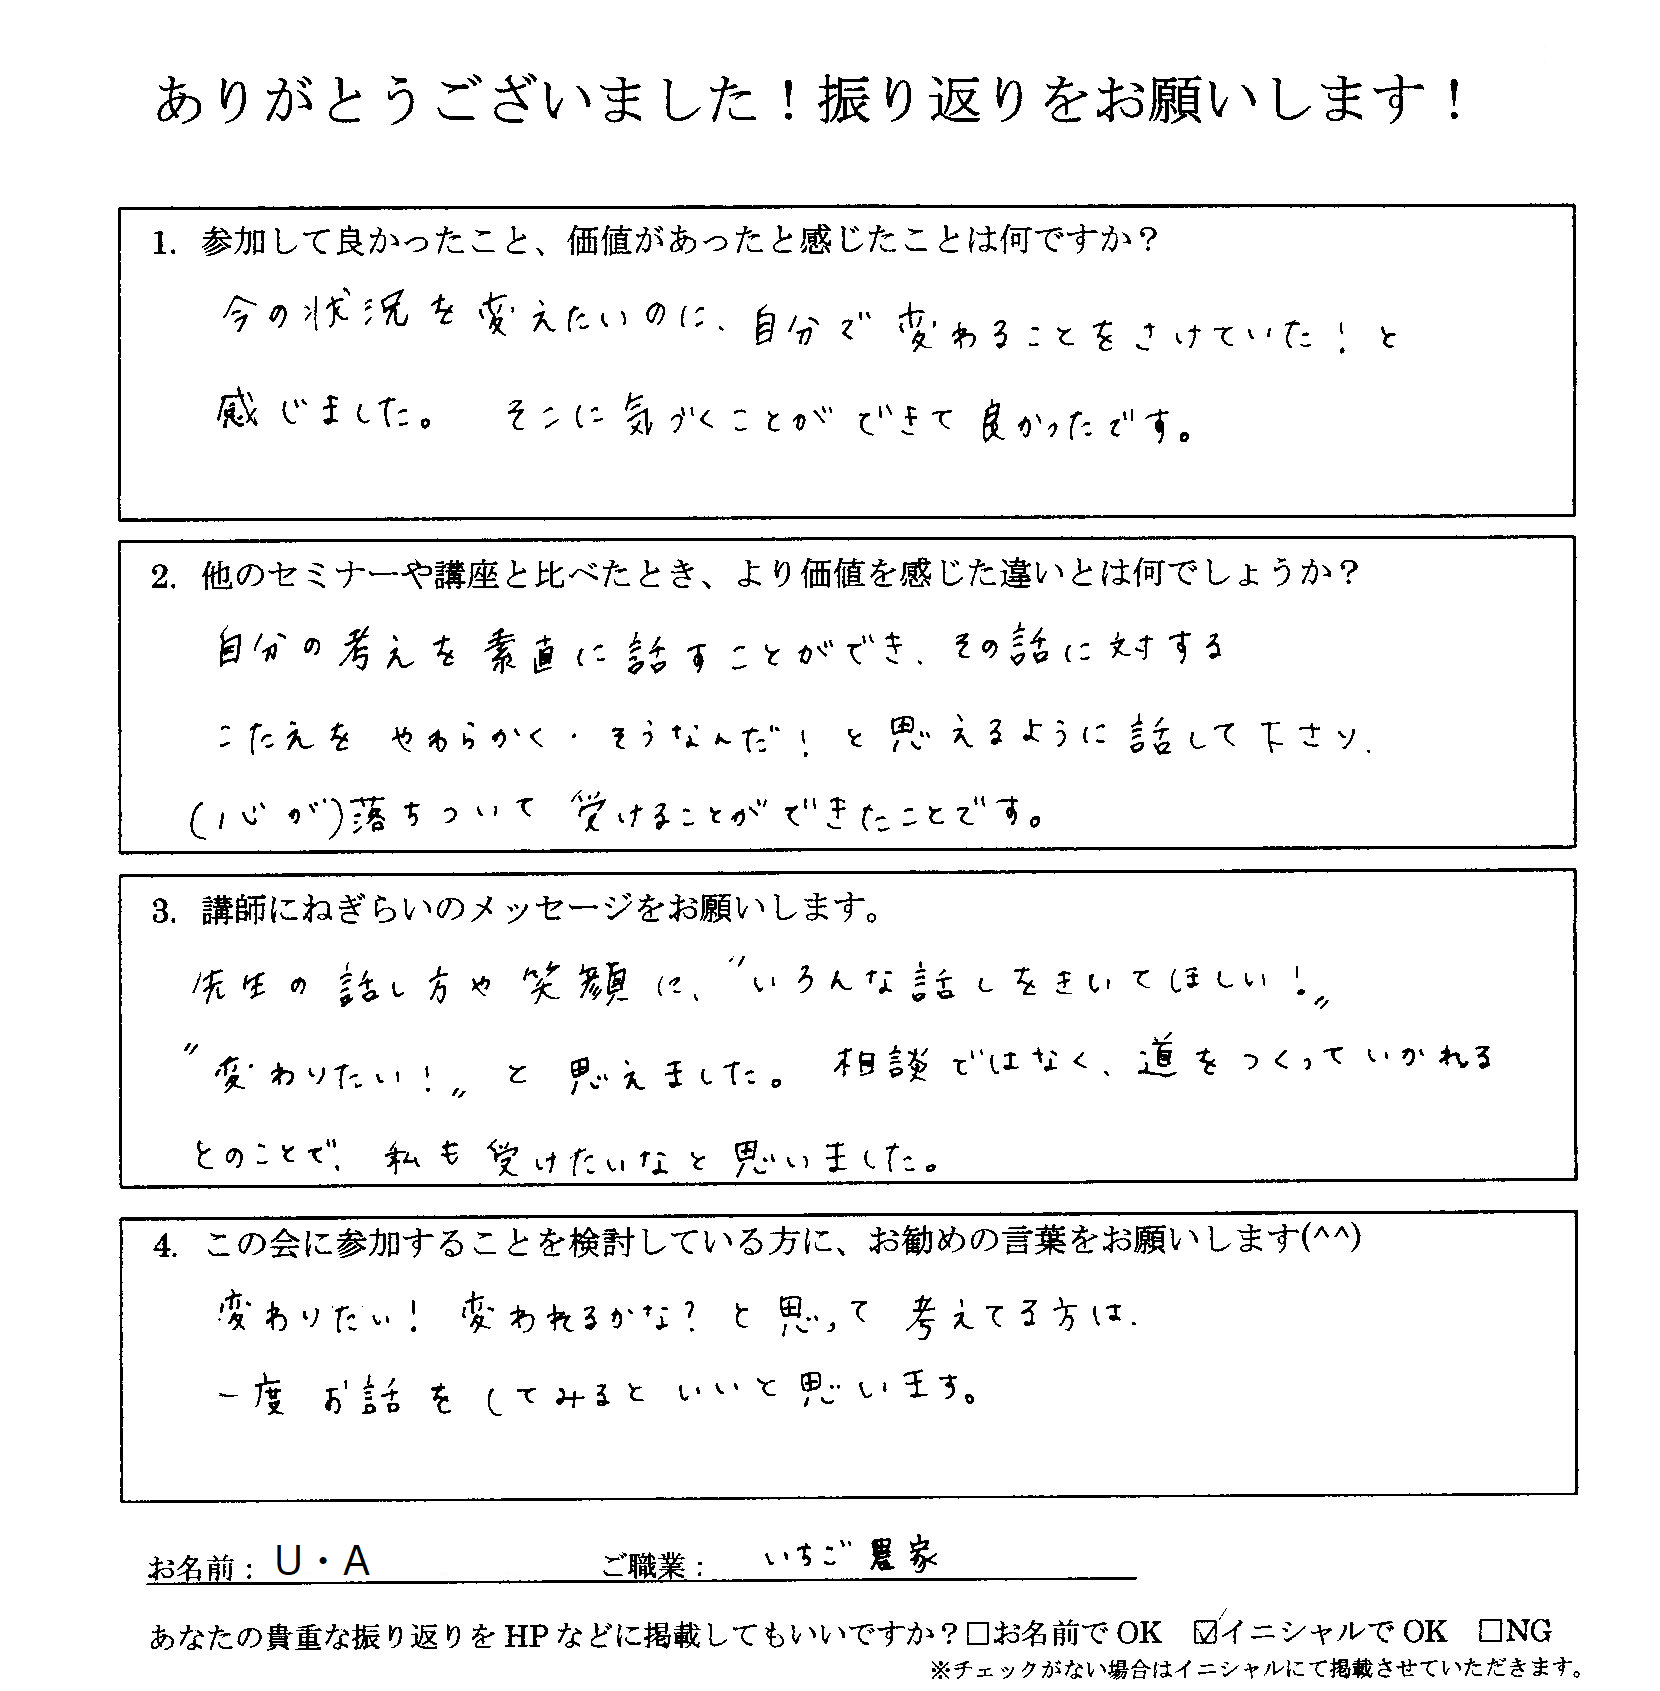 ありがとうございました！振り返りをお願いします！
1. 参加して良かったこと、価値があったと感じたことは何ですか？
今の状況を変えたいのに、自分で変わることをさけていた！と
感じました。 そこに気づくことができて良かったです。
2. 他のセミナーや講座と比べたとき、より価値を感じた違いとは何でしょうか？
自分の考えを素直に話すことができ、その話に対する
こたえを やわらかく・そうなんだ！と思えるように話して下さり、
(心が)落ちついて受けることができたことです。
3. 講師にねぎらいのメッセージをお願いします。
先生の話し方や笑顔に、〝いろんな話しをきいてほしい！〟
〝変わりたい！〟と思えました。相談ではなく、道をつくっていかれる
とのことで、私も受けたいなと思いました。
4. この会に参加することを検討している方に、お勧めの言葉をお願いします(^^)
変わりたい！変われるかな？と思って考えてる方は、
一度お話をしてみるといいと思います。
お名前： U・A ご職業： いちご農家
あなたの貴重な振り返りをHPなどに掲載してもいいですか？□お名前でOK ☑イニシャルでOK □NG
※チェックがない場合はイニシャルにて掲載させていただきます。